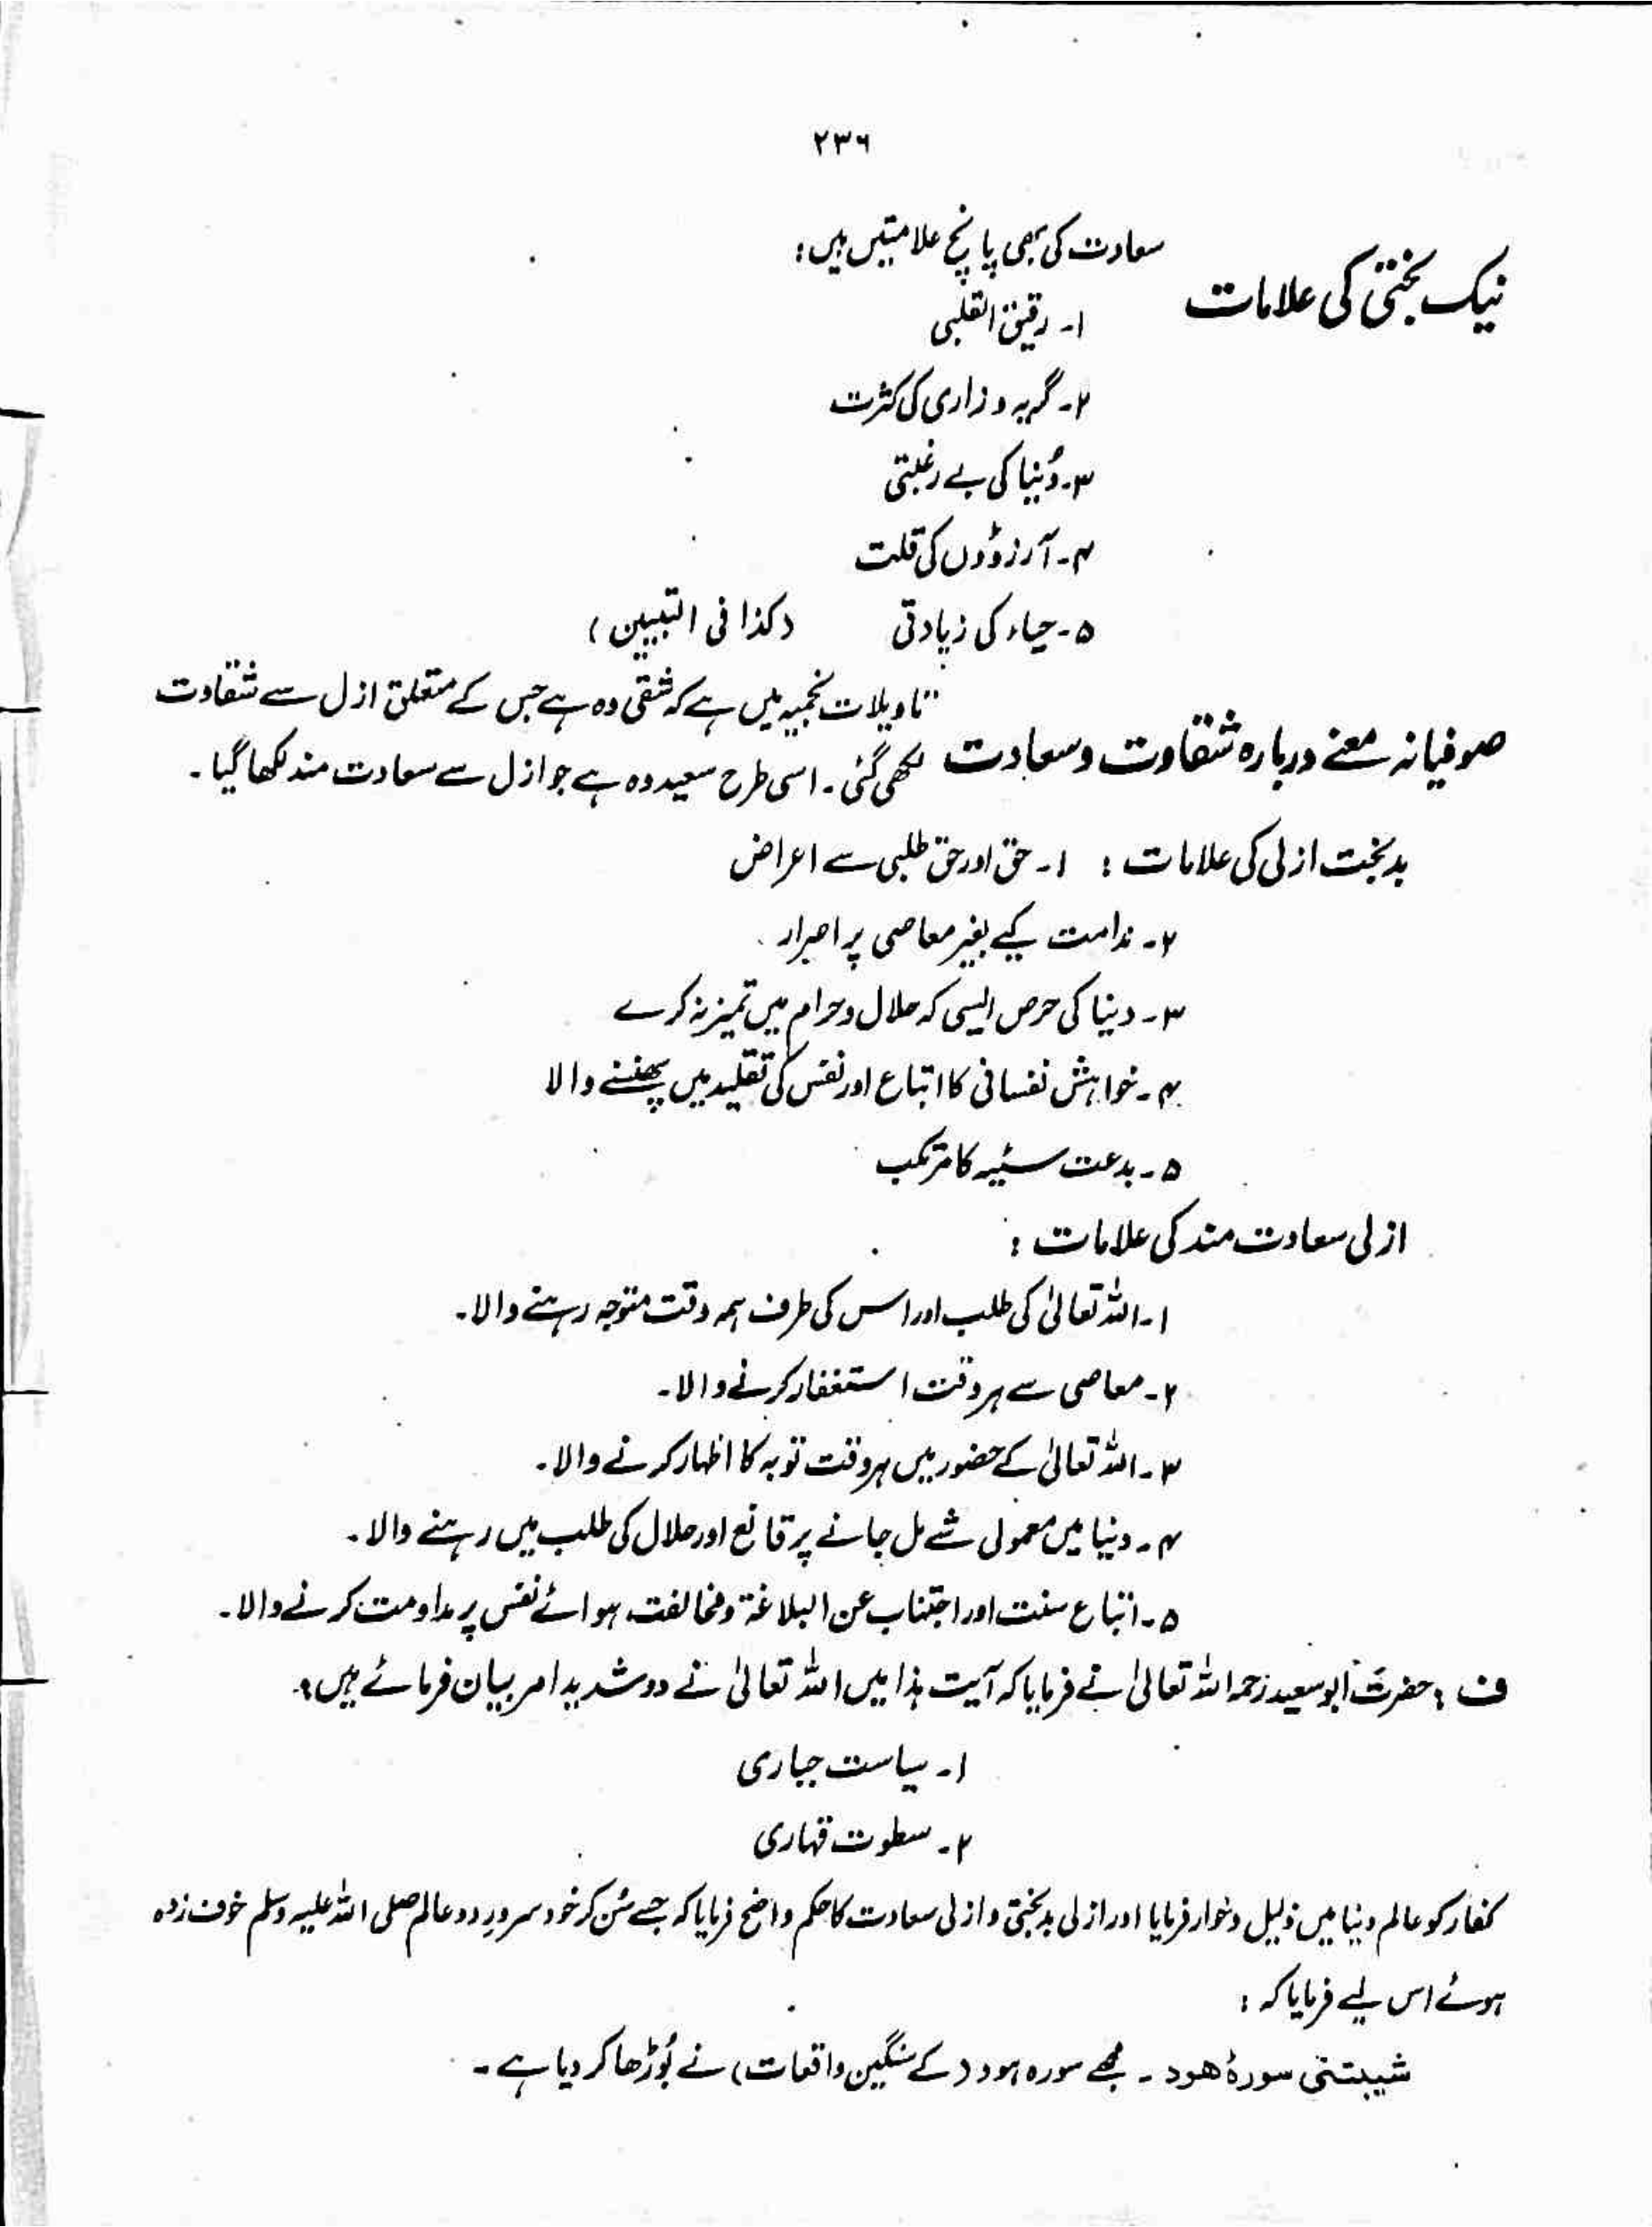 ۲۳۶
نیک بختی کی علامات
سعادت کی بھی پانچ علامتیں ہیں:
۱۔ رقیق القلبی
۲۔ گریہ و زاری کی کثرت
۳۔ دُنیا کی بے رغبتی
۴۔ آرزوؤں کی قلت
۵۔ حیاء کی زیادتی (کذا فی التبیین)
صوفیانہ معنے دربارہ شقاوت وسعادت
تاویلات نجمیہ میں ہے کہ شقی وہ ہے جس کے متعلق ازل سے شقاوت
لکھی گئی۔ اسی طرح سعید وہ ہے جو ازل سے سعادت مند لکھا گیا۔
بدبخت ازلی کی علامات : ۱۔ حق اور حق طلبی سے اعراض
۲۔ ندامت کیے بغیر معاصی پر اصرار
۳۔ دنیا کی حرص ایسی کہ حلال و حرام میں تمیز نہ کرے
۴۔ خواہش نفسانی کا اتباع اور نفس کی تقلید میں پھنسنے والا
۵۔ بدعت سئیہ کا مرتکب
ازلی سعادت مند کی علامات :
۱۔ اللہ تعالیٰ کی طلب اور اس کی طرف ہمہ وقت متوجہ رہنے والا۔
۲۔ معاصی سے ہر وقت استغفار کرنے والا۔
۳۔ اللہ تعالیٰ کے حضور میں ہر وقت توبہ کا اظہار کرنے والا۔
۴۔ دنیا میں معمولی شے مل جانے پر قانع اور حلال کی طلب میں رہنے والا۔
۵۔ اتباع سنت اور اجتناب عن البلاغۃ و مخالفت ہوائے نفس پر مداومت کرنے والا۔
ف : حضرت ابوسعید رحمہ اللہ تعالیٰ نے فرمایا کہ آیت ہذا میں اللہ تعالیٰ نے دو شدید امر بیان فرمائے ہیں:
۱۔ سیاست جباری
۲۔ سطوت قہاری
کفار کو عالم دنیا میں ذلیل و خوار فرمایا اور ازلی بدبختی و ازلی سعادت کا حکم واضح فرمایا کہ جسے سُن کر خود سرورِ دو عالم صلی اللہ علیہ وسلم خوف زدہ
ہوئے اس لیے فرمایا کہ :
شیبتنی سورۂ ھود ۔ مجھے سورہ ہود (کے سنگین واقعات) نے بُوڑھا کر دیا ہے۔